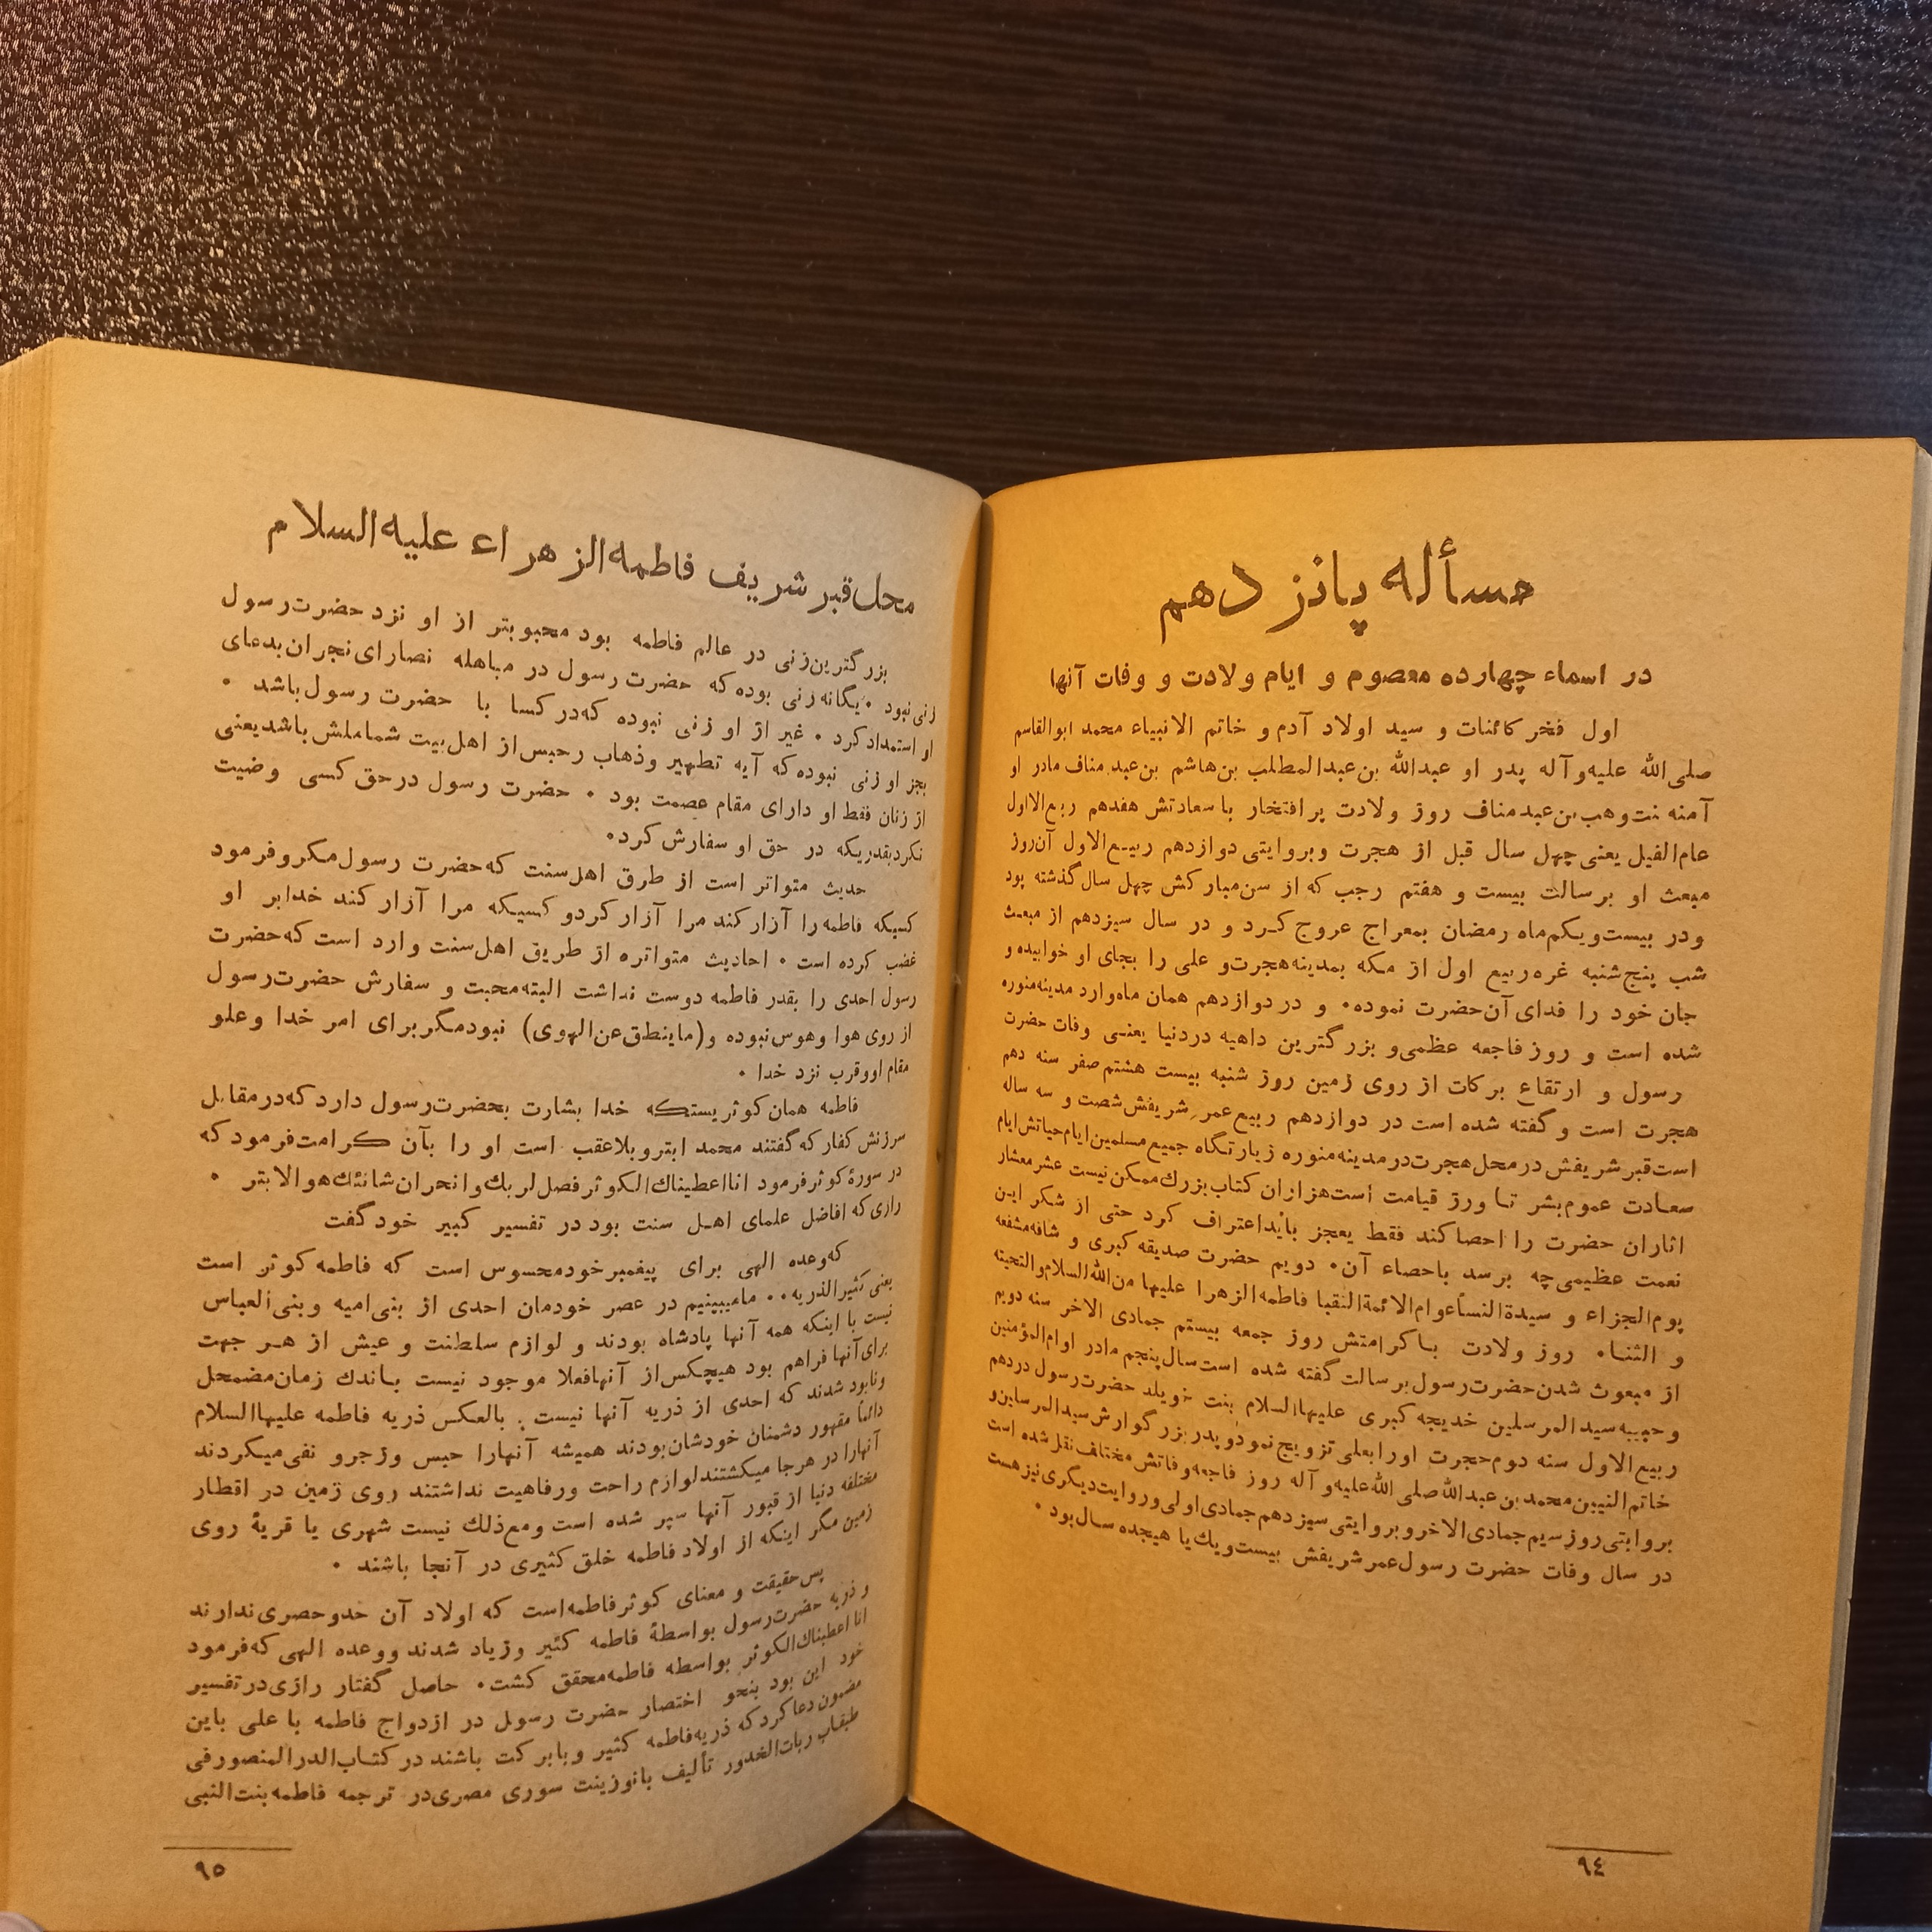 مسأله پانزدهم
در اسماء چهارده معصوم و ایام ولادت و وفات آنها
اول فخر کائنات و سید اولاد آدم و خاتم الانبیاء محمد ابوالقاسم
صلی‌الله علیه‌و آله پدر او عبدالله بن‌عبدالمطلب بن‌هاشم بن‌عبد مناف مادر او
آمنه نت‌وهب‌بن‌عبدمناف روز ولادت پر افتخار با سعادتش هفدهم ربع‌الاول
عام‌الفیل یعنی چهل سال قبل از هجرت و بروایتی دوازدهم ربیع‌الاول آن‌روز
مبعث او برسالت بیست و هفتم رجب که از سن‌مبارکش چهل سال گذشته بود
ودر بیست‌ویکم‌ماه رمضان بمعراج عروج کرد و در سال سیزدهم از مبعث
شب پنج‌شنبه غره‌ربیع اول از مکه بمدینه‌هجرت‌و علی را بجای او خوابیده و
جان خود را فدای آن‌حضرت نموده۰ و در دوازدهم همان ماه‌وارد مدینه‌منوره
شده است و روز فاجعه عظمی‌و بزرگترین داهیه دردنیا یعنی وفات حضرت
رسول و ارتقاع برکات از روی زمین روز شنبه بیست هشتم صفر سنه دهم
هجرت است و گفته شده است در دوازدهم ربیع عمر شریفش شصت و سه ساله
است‌قبر شریفش در محل هجرت‌در مدینه‌منوره زیارتگاه جمیع مسلمین‌ایام‌حیاتش‌ایام
سعادت عموم‌بشر تا ورز قیامت است‌هزاران کتاب بزرك ممکن‌نیست عشر معشار
اثاران حضرت را احصا کند فقط یعجز باید اعتراف کرد حتی از شکر این
نعمت عظیمی‌چه برسد باحصاء آن۰ دویم حضرت صدیقه کبری و شافه‌مشفعه
یوم‌الجزاء و سیدة‌النسأ‌وام‌الائمة‌النقبا فاطمه‌الزهرا علیها من‌الله‌السلام‌والتحیته
و الثناء۰ روز ولادت باکرامتش روز جمعه بیستم جمادی الاخر سنه دویم
از مبعوث شدن‌حضرت‌رسول‌برسالت گفته شده است‌سال‌پنجم مادر اوام‌المؤمنین
وحبیبه‌سید‌المرسلین خدیجه کبری علیها‌السلام بنت خویلد حضرت‌رسول دردهم
ربیع‌الاول سنه دوم‌حجرت اورابعلی تزویج نمود‌و پدر بزرگوارش‌سید‌المرساین‌و
خاتم‌النبین‌محمدبن‌عبدالله‌صلی الله‌علیه‌و آله روز فاجعه‌وفاتش مختلف‌نقل شده است
بروایتی‌روز سیم‌جمادی‌الاخر‌و بروایتی سیزدهم جمادی اولی و روایت دیگری نیز هست
در سال وفات حضرت رسول‌عمر شریفش بیست‌ویك‌یا هیجده سال‌بود ۰
۹٤
محل‌قبر شریف فاطمه‌الزهراء علیه‌السلام
بزرگترین‌زنی در عالم فاطمه بود محبوبتر از او نزد حضرت‌رسول
زنی‌نبود ۰ یگانه‌زنی بوده که حضرت رسول در مباهله نصارای‌نجران‌بدعای
او استمداد کرد ۰ غیر از او زنی نبوده که‌در کسا با حضرت رسول‌باشد ۰
بجز او زنی نبوده که آیه تطهیر وذهاب رحبس‌از اهل‌بیت شماملش‌باشد یعنی
از زنان فقط او دارای مقام عصمت بود ۰ حضرت رسول درحق کسی وضیت
نکرد‌بقدریکه در حق او سفارش کرد۰
حدیث متواتر است از طرق اهل‌سنت که‌حضرت رسول‌مکرو فرمود
کسیکه فاطمه را آزار کند مرا آزار کردو کسیکه مرا آزار کند خدابر او
غضب کرده است ۰ احادیث متواتره از طریق اهل‌سنت وارد است که‌حضرت
رسول احدی را بقدر فاطمه دوست نداشت البته‌محبت و سفارش حضرت‌رسول
از روی هوا وهوس‌نبوده و(ماینطق‌عن‌الهوی) نبودمگر برای امر خدا وعلو
مقام اووقرب نزد خدا ۰
فاطمه همان کوثریستکه خدا بشارت بحضرت‌رسول دارد که‌درمقابل
سرزنش کفار که گفتند محمد ابتر‌وبلاعقب است او را بآن کرامت‌فرمود که
در سورۀ کوثر فرمود انا‌اعطیناك‌الکوثر فصل‌لربك‌وانحران‌شانئك‌هوالابتر ۰
رازی که افاضل علمای اهل سنت بود در تفسیر کبیر خود گفت
که‌وعده الهی برای پیغمبر خود‌محسوس است که فاطمه کوثر است
یعنی کثیر‌الذریه۰۰ مامیبینیم در عصر خودمان احدی از بنی‌امیه و بنی‌العباس
نیست با اینکه همه آنها پادشاه بودند و لوازم سلطنت و عیش از هر جهت
برای آنها فراهم بود هیچکس‌از آنهافعلا موجود نیست باندك زمان‌مضمحل
ونابود شدند که احدی از ذریه آنها نیست . بالعکس ذریه فاطمه علیها‌السلام
دائماً مقهور دشمنان خودشان‌بودند همیشه آنهارا حبس وزجر‌و نفی‌میکردند
آنهارا در هرجا میکشتند‌لوازم راحت ورفاهیت نداشتند روی زمین در اقطار
مختلفه دنیا از قبور آنها سپر شده است ومع‌ذلك نیست شهری یا قریۀ روی
زمین مگر اینکه از اولاد فاطمه خلق کثیری در آنجا باشند ۰
پس‌حقیقت و معنای کوثر فاطمه‌است که اولاد آن حدوحصری‌ندارند
و ذریه حضرت‌رسول بواسطۀ فاطمه کثیر وزیاد شدند ووعده الهی که‌فرمود
انا اعطیناك‌الکوثر بواسطه فاطمه‌محقق کشت۰ حاصل گفتار رازی‌در تفسیر
خود این بود بنحو اختصار حضرت رسول در ازدواج فاطمه با علی باین
مضمون دعا کرد که ذریه‌فاطمه کثیر و بابرکت باشند در کتاب‌الدر‌المنصور‌فی
طبقاب ربات‌الخدور تألیف بانوزینت سوری مصری‌در ترجمه فاطمه‌بنت‌النبی
۹٥